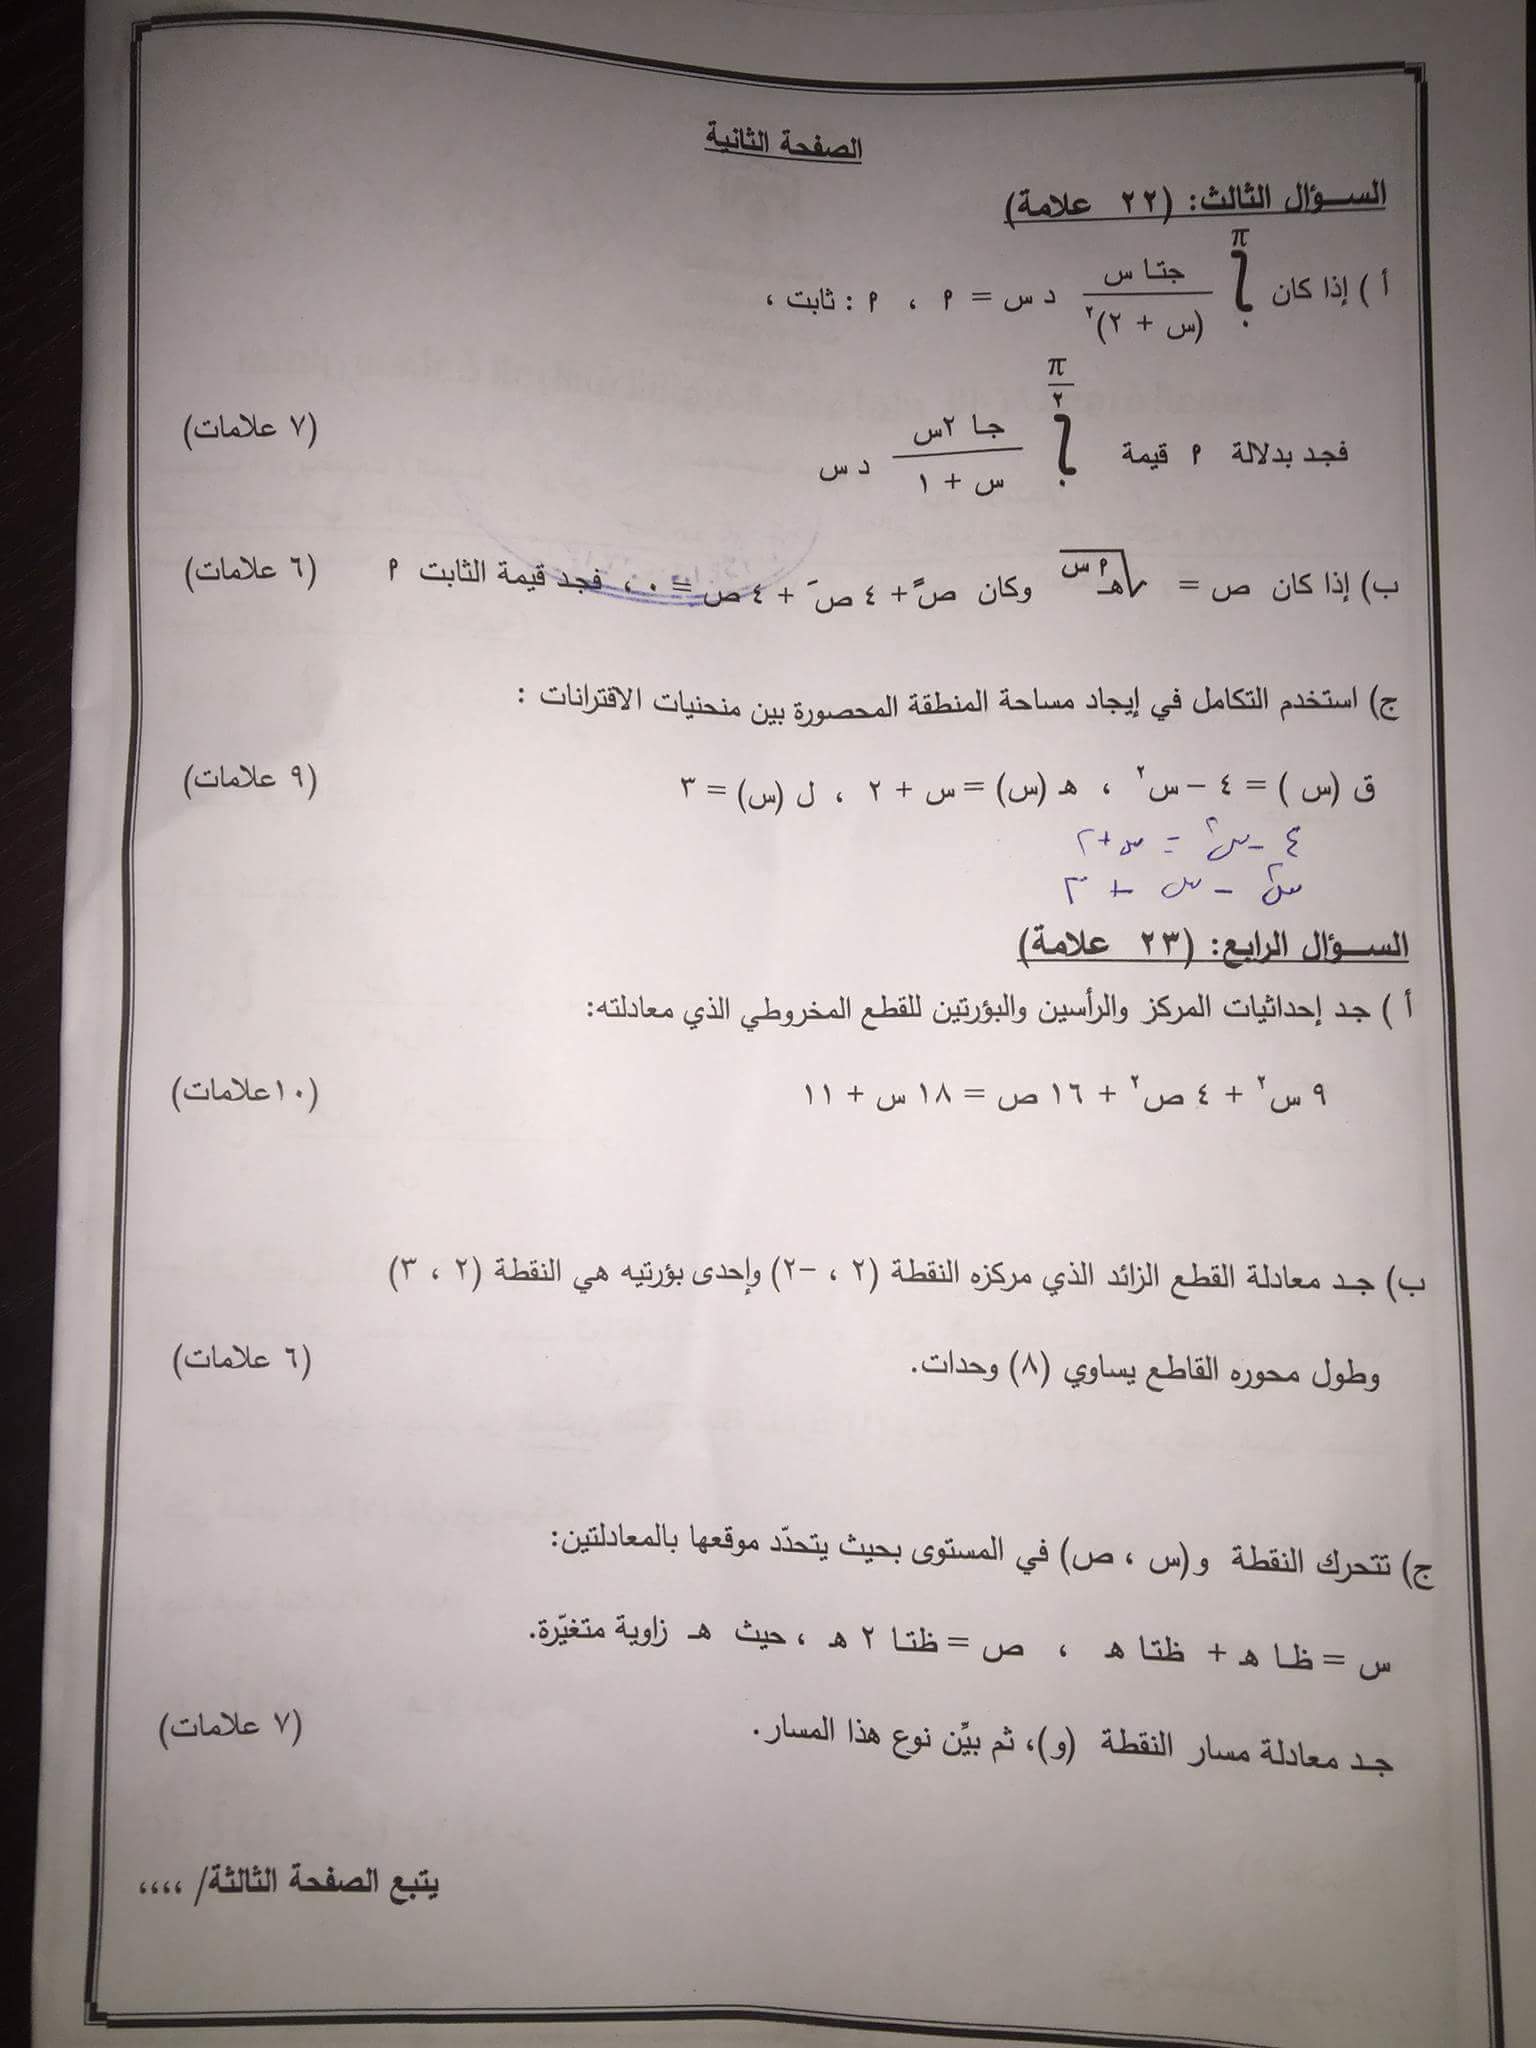 الصفحة الثانية
السؤال الثالث: (٢٢ علامة)
أ ) إذا كان ∫٠^π جتا س / (س + ٢)٢ د س = ٩ ، ٩ : ثابت ،
فجد بدلالة ٩ قيمة ∫٠^(π/٢) جا ٢س / س + ١ د س (٧ علامات)
ب) إذا كان ص = √هـ^(٩ س) وكان صً + ٤ صَ + ٤ ص = ٠ ، فجد قيمة الثابت ٩ (٦ علامات)
ج) استخدم التكامل في إيجاد مساحة المنطقة المحصورة بين منحنيات الاقترانات :
ق (س ) = ٤ – س٢ ، هـ (س) = س + ٢ ، ل (س) = ٣ (٩ علامات)
٤ - س٢ = س + ٢
س٢ - س + ٢
السؤال الرابع: (٢٣ علامة)
أ ) جد إحداثيات المركز والرأسين والبؤرتين للقطع المخروطي الذي معادلته:
٩ س٢ + ٤ ص٢ + ١٦ ص = ١٨ س + ١١ (١٠علامات)
ب) جد معادلة القطع الزائد الذي مركزه النقطة (٢ ، –٢) وإحدى بؤرتيه هي النقطة (٢ ، ٣)
وطول محوره القاطع يساوي (٨) وحدات. (٦ علامات)
ج) تتحرك النقطة و(س ، ص) في المستوى بحيث يتحدّد موقعها بالمعادلتين:
س = ظا هـ + ظتا هـ ، ص = ظتا ٢ هـ ، حيث هـ زاوية متغيّرة.
جد معادلة مسار النقطة (و)، ثم بيِّن نوع هذا المسار. (٧ علامات)
يتبع الصفحة الثالثة/ ،،،،